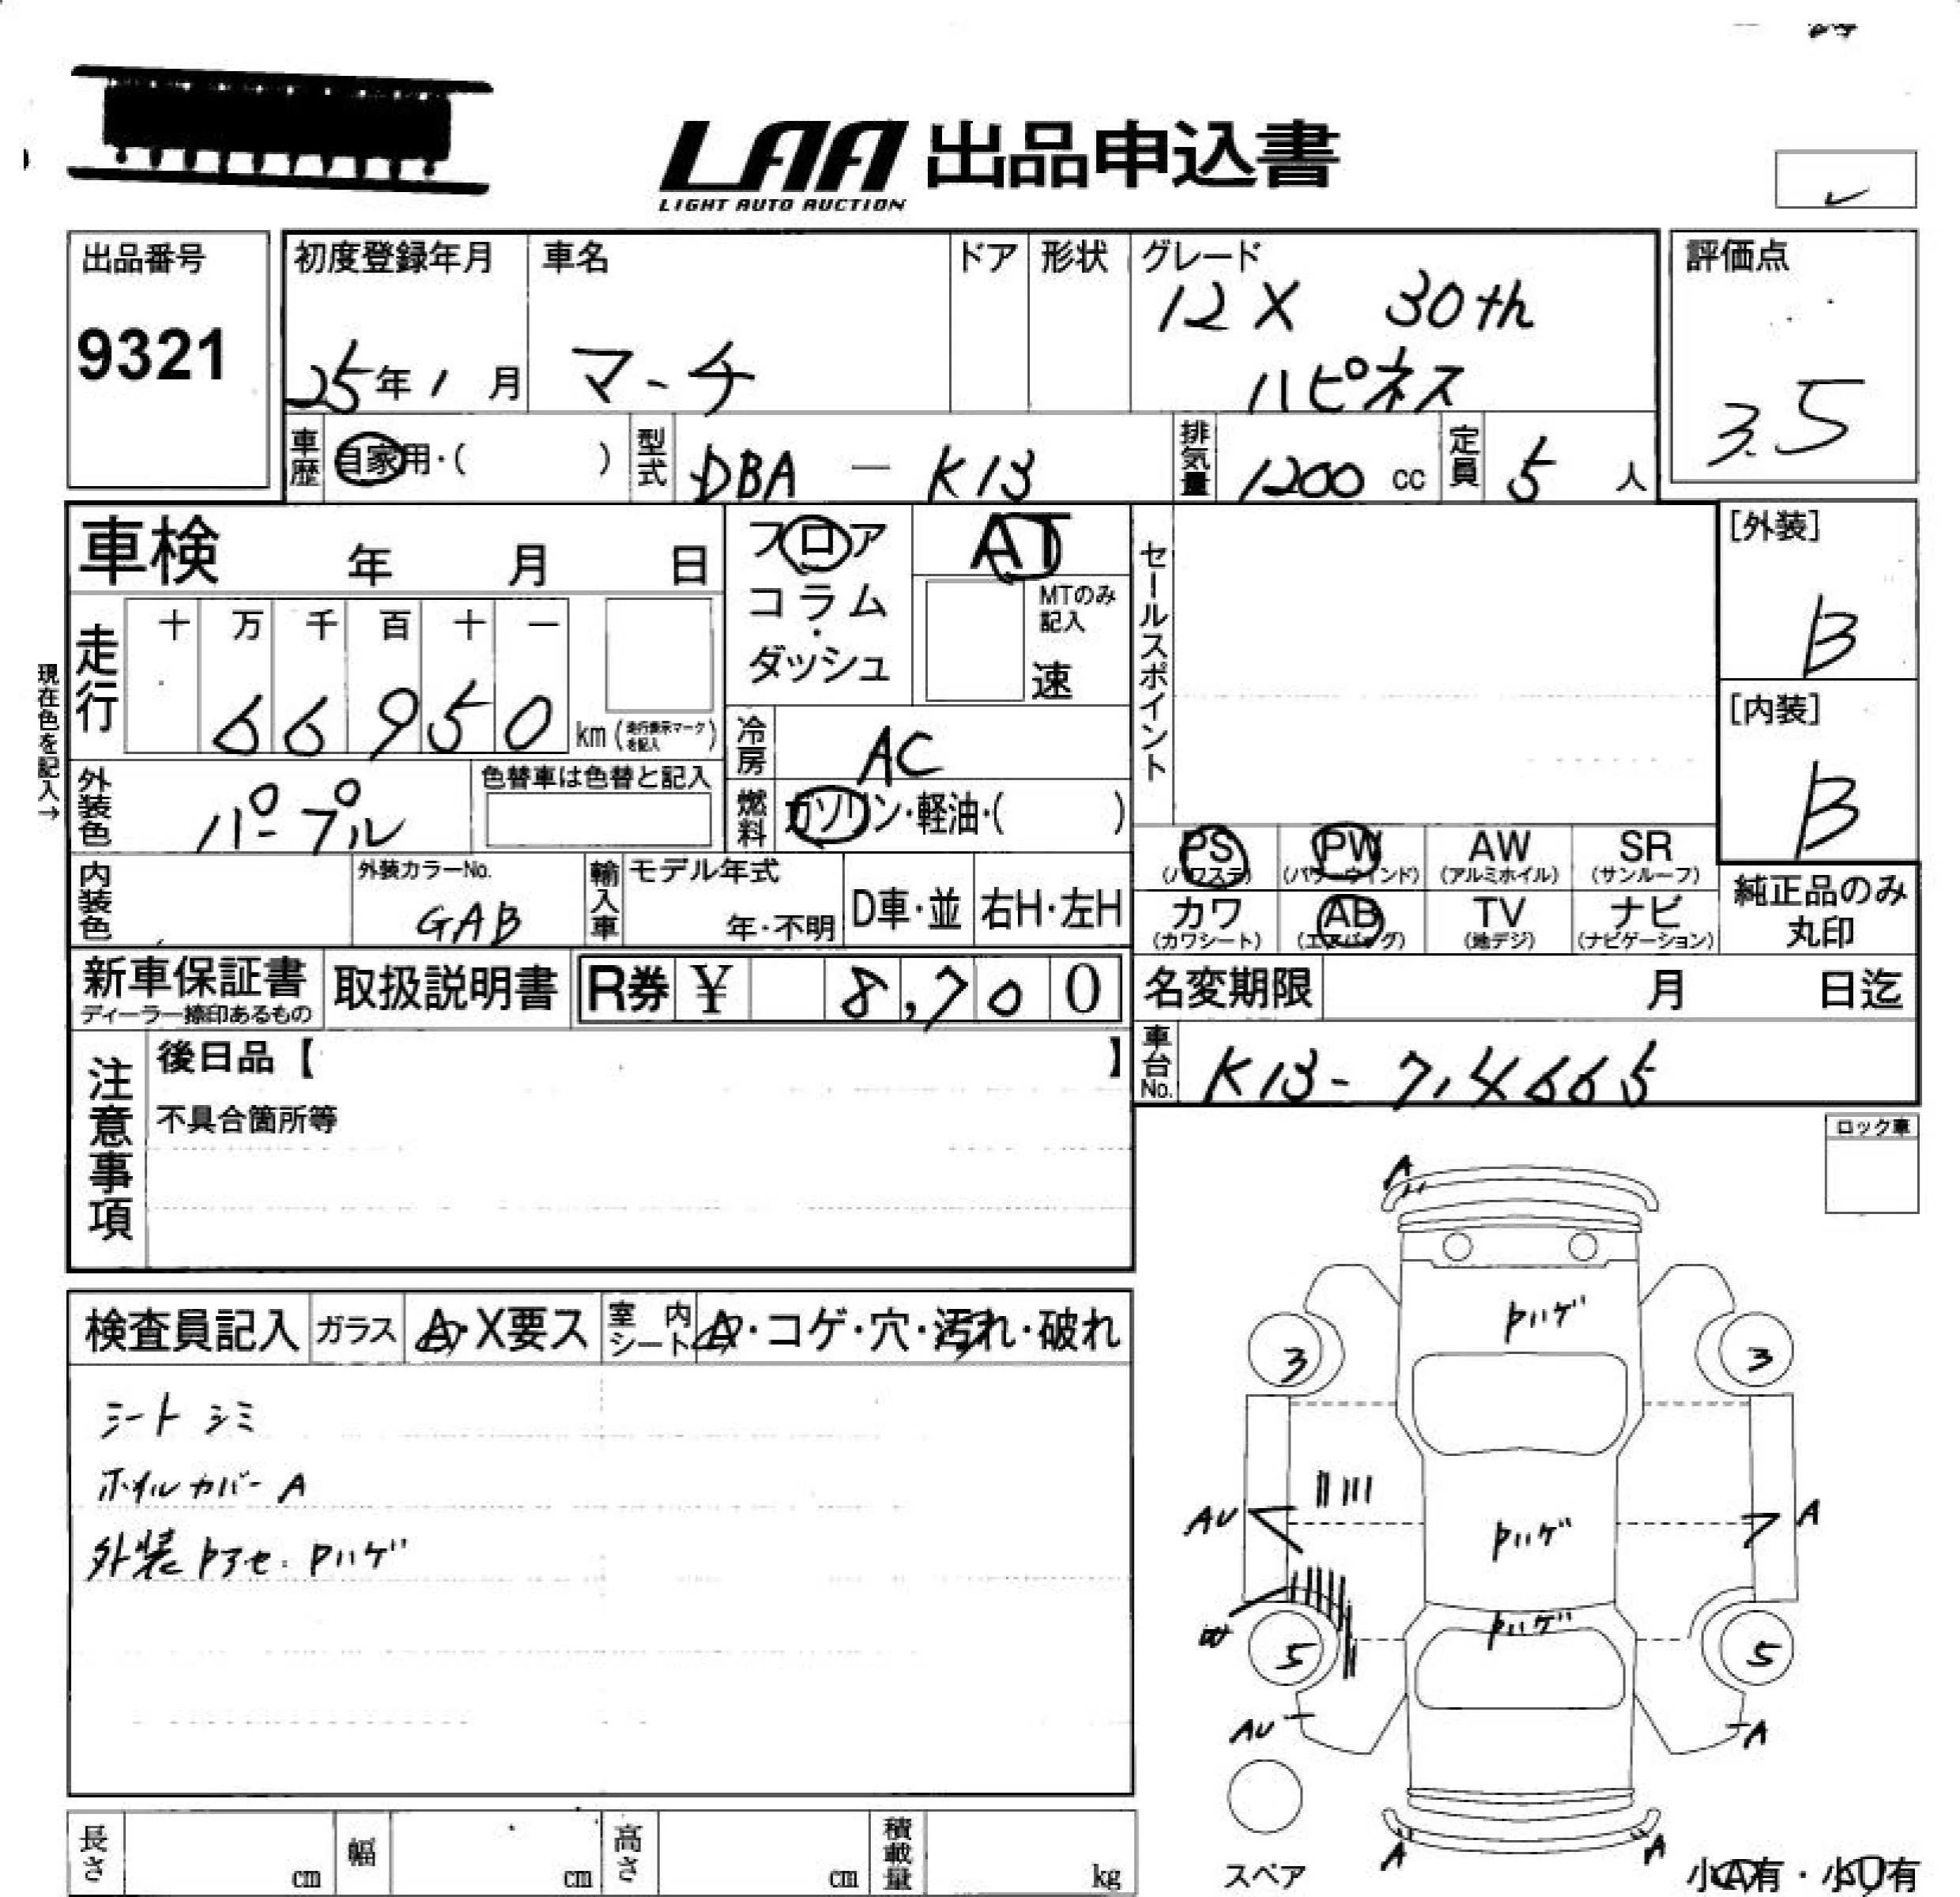 LAA 出品申込書
LIGHT AUTO AUCTION
出品番号
9321
初度登録年月
25年1月
車名
マーチ
ドア
形状
グレード
12X 30th
ハピネス
評価点
3.5
車歴 自家用・( )
型式 DBA - K13
排気量 1200 cc
定員 5 人
車検 年 月 日
フロア
コラム
・
ダッシュ
AT
MTのみ
記入
速
セールスポイント
[外装]
B
[内装]
B
現在色を記入→
走行 十 万 千 百 十 一
66950 km (走行表示マークを記入)
冷房 AC
外装色 パープル
色替車は色替と記入
燃料 ガソリン・軽油・( )
PS (パワステ)
PW (パワーウインド)
AW (アルミホイル)
SR (サンルーフ)
カワ (カワシート)
AB (エアバッグ)
TV (地デジ)
ナビ (ナビゲーション)
純正品のみ
丸印
内装色
外装カラーNo.
GAB
輸入車
モデル年式
年・不明
D車・並
右H・左H
新車保証書
ディーラー捺印あるもの
取扱説明書
R券 ¥ 8,700
名変期限 月 日迄
車台No. K13-714665
注意事項
後日品【 】
不具合箇所等
ロック車
検査員記入
ガラス A・X要ス
室内シート A・コゲ・穴・汚れ・破れ
シート シミ
ホイルカバー A
外装 Pアセ. Pハゲ
A
Pハゲ
3
3
AU
Pハゲ
A
W
Pハゲ
5
5
AU
A
A
A
スペア
小A有・小U有
長さ cm
幅 cm
高さ cm
積載量 kg